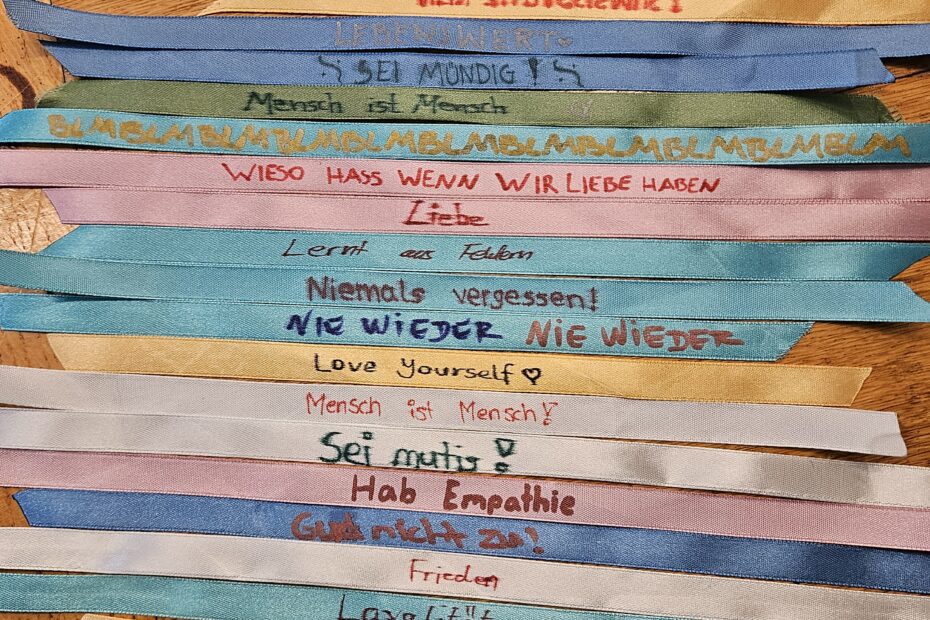 LEBENSWERT♡
SEI MÜNDIG!
Mensch ist Mensch
BLMBLMBLMBLMBLMBLMBLMBLMBLMBLMBLM
WIESO HASS WENN WIR LIEBE HABEN
Liebe
Lernt aus Fehlern
Niemals vergessen!
NIE WIEDER NIE WIEDER
Love Yourself ♡
Mensch ist Mensch!
Sei mutig!
Hab Empathie
nicht zu!
Frieden